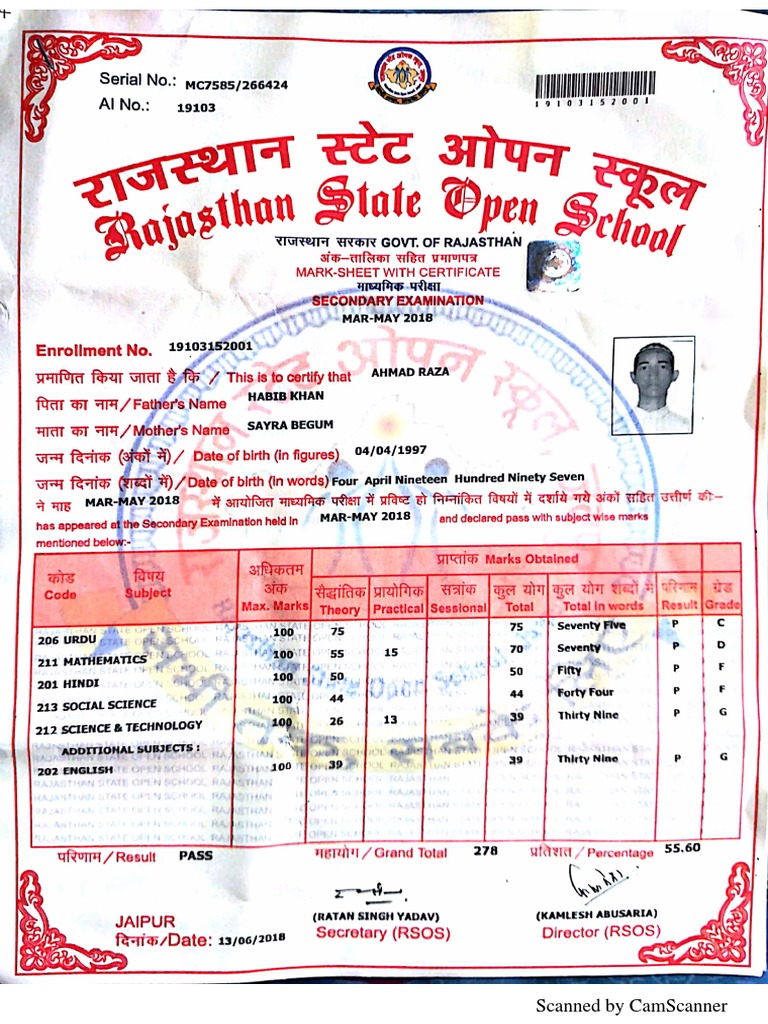 Serial No.: MC7585/266424
AI No.: 19103
19103152001
राजस्थान स्टेट ओपन स्कूल
Rajasthan State Open School
राजस्थान सरकार GOVT. OF RAJASTHAN
अंक–तालिका सहित प्रमाणपत्र
MARK-SHEET WITH CERTIFICATE
माध्यमिक परीक्षा
SECONDARY EXAMINATION
MAR-MAY 2018
Enrollment No. 19103152001
प्रमाणित किया जाता है कि / This is to certify that AHMAD RAZA
पिता का नाम/Father's Name HABIB KHAN
माता का नाम/Mother's Name SAYRA BEGUM
जन्म दिनांक (अंकों में)/ Date of birth (in figures) 04/04/1997
जन्म दिनांक (शब्दों में)/Date of birth (in words) Four April Nineteen Hundred Ninety Seven
ने माह MAR-MAY 2018 में आयोजित माध्यमिक परीक्षा में प्रविष्ट हो निम्नांकित विषयों में दर्शाये गये अंकों सहित उत्तीर्ण की:–
has appeared at the Secondary Examination held in MAR-MAY 2018 and declared pass with subject wise marks
mentioned below:-
कोड विषय अधिकतम अंक प्राप्तांक Marks Obtained
सैद्धांतिक प्रायोगिक सत्रांक कुल योग कुल योग शब्दों में परिणाम ग्रेड
Code Subject Max. Marks Theory Practical Sessional Total Total in words Result Grade
206 URDU 100 75 75 Seventy Five P C
211 MATHEMATICS 100 55 15 70 Seventy P D
201 HINDI 100 50 50 Fifty P F
213 SOCIAL SCIENCE 100 44 44 Forty Four P F
212 SCIENCE & TECHNOLOGY 100 26 13 39 Thirty Nine P G
ADDITIONAL SUBJECTS :
202 ENGLISH 100 39 39 Thirty Nine P G
परिणाम/Result PASS महायोग/Grand Total 278 प्रतिशत/Percentage 55.60
JAIPUR
दिनांक/Date: 13/06/2018
(RATAN SINGH YADAV)
Secretary (RSOS)
(KAMLESH ABUSARIA)
Director (RSOS)
Scanned by CamScanner